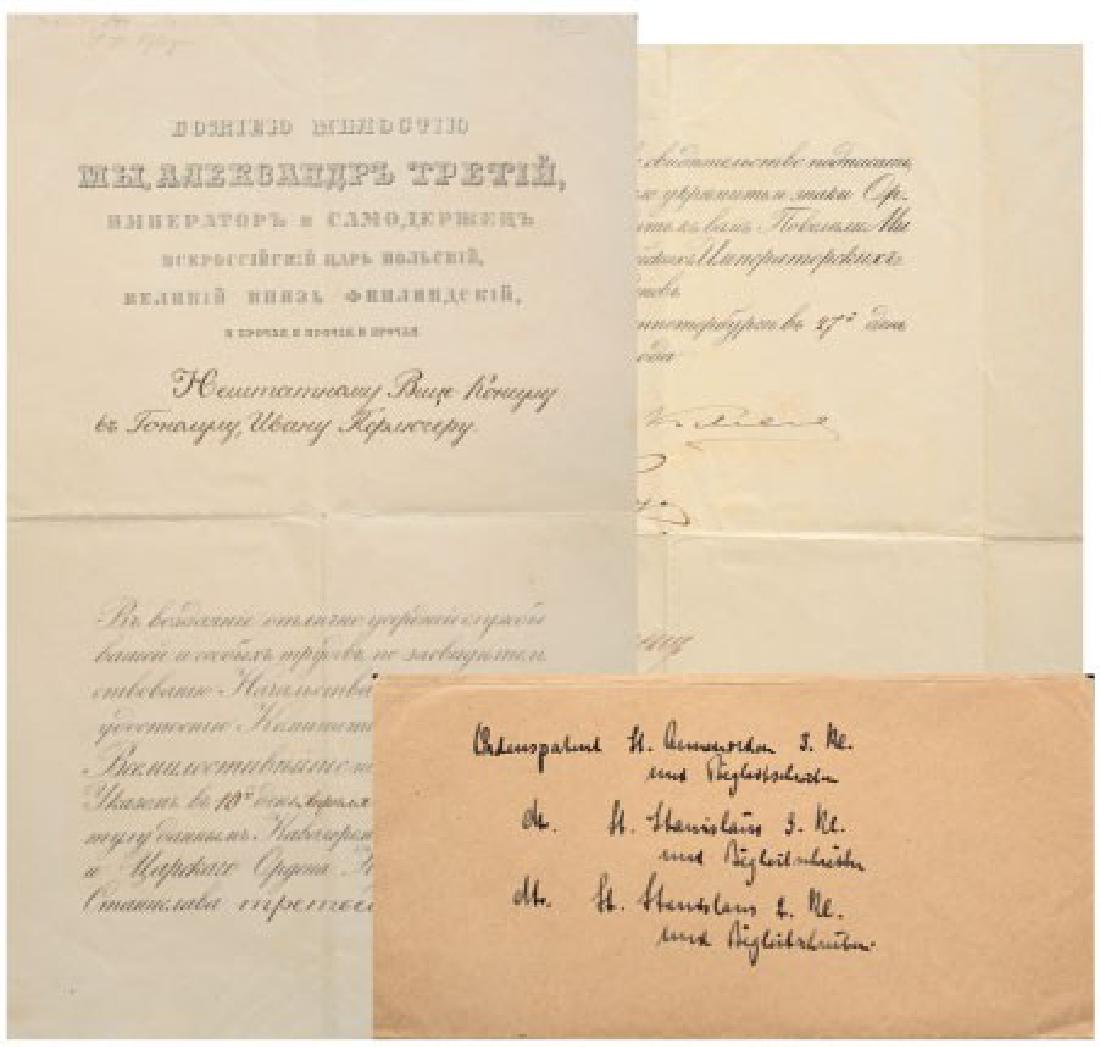 БОЖІЕЮ МИЛОСТІЮ
МЫ, АЛЕКСАНДРЪ ТРЕТІЙ,
ИМПЕРАТОРЪ и САМОДЕРЖЕЦЪ
ВСЕРОССІЙСКІЙ ЦАРЬ ПОЛЬСКІЙ,
ВЕЛИКІЙ КНЯЗЬ ФИНЛЯНДСКІЙ,
И ПРОЧАЯ, И ПРОЧАЯ, И ПРОЧАЯ.
Нештатному Вице Консулу
въ Гонолулу, Ивану Пфлюгеру.
Въ воздаяніе отлично усердной службы
вашей и особыхъ трудовъ по засвидѣтель
ствованію Начальства
удостоенію Комитета
Всемилостивѣйше
Указомъ въ 10й день Апрѣля
тулу даннымъ, Кавалеромъ
и Царскаго Ордена
Станислава третьей
свидѣтельство подписать,
укрѣпить и знаки Ор-
къ вамъ Повелѣли Мы
Императорскихъ
въ 27й день
года
Ordenspatent St. Annenorden 3. Kl.
und Begleitschreiben
dto. St. Stanislaus 3. Kl.
und Begleitschreiben
dto. St. Stanislaus 2. Kl.
und Begleitschreiben